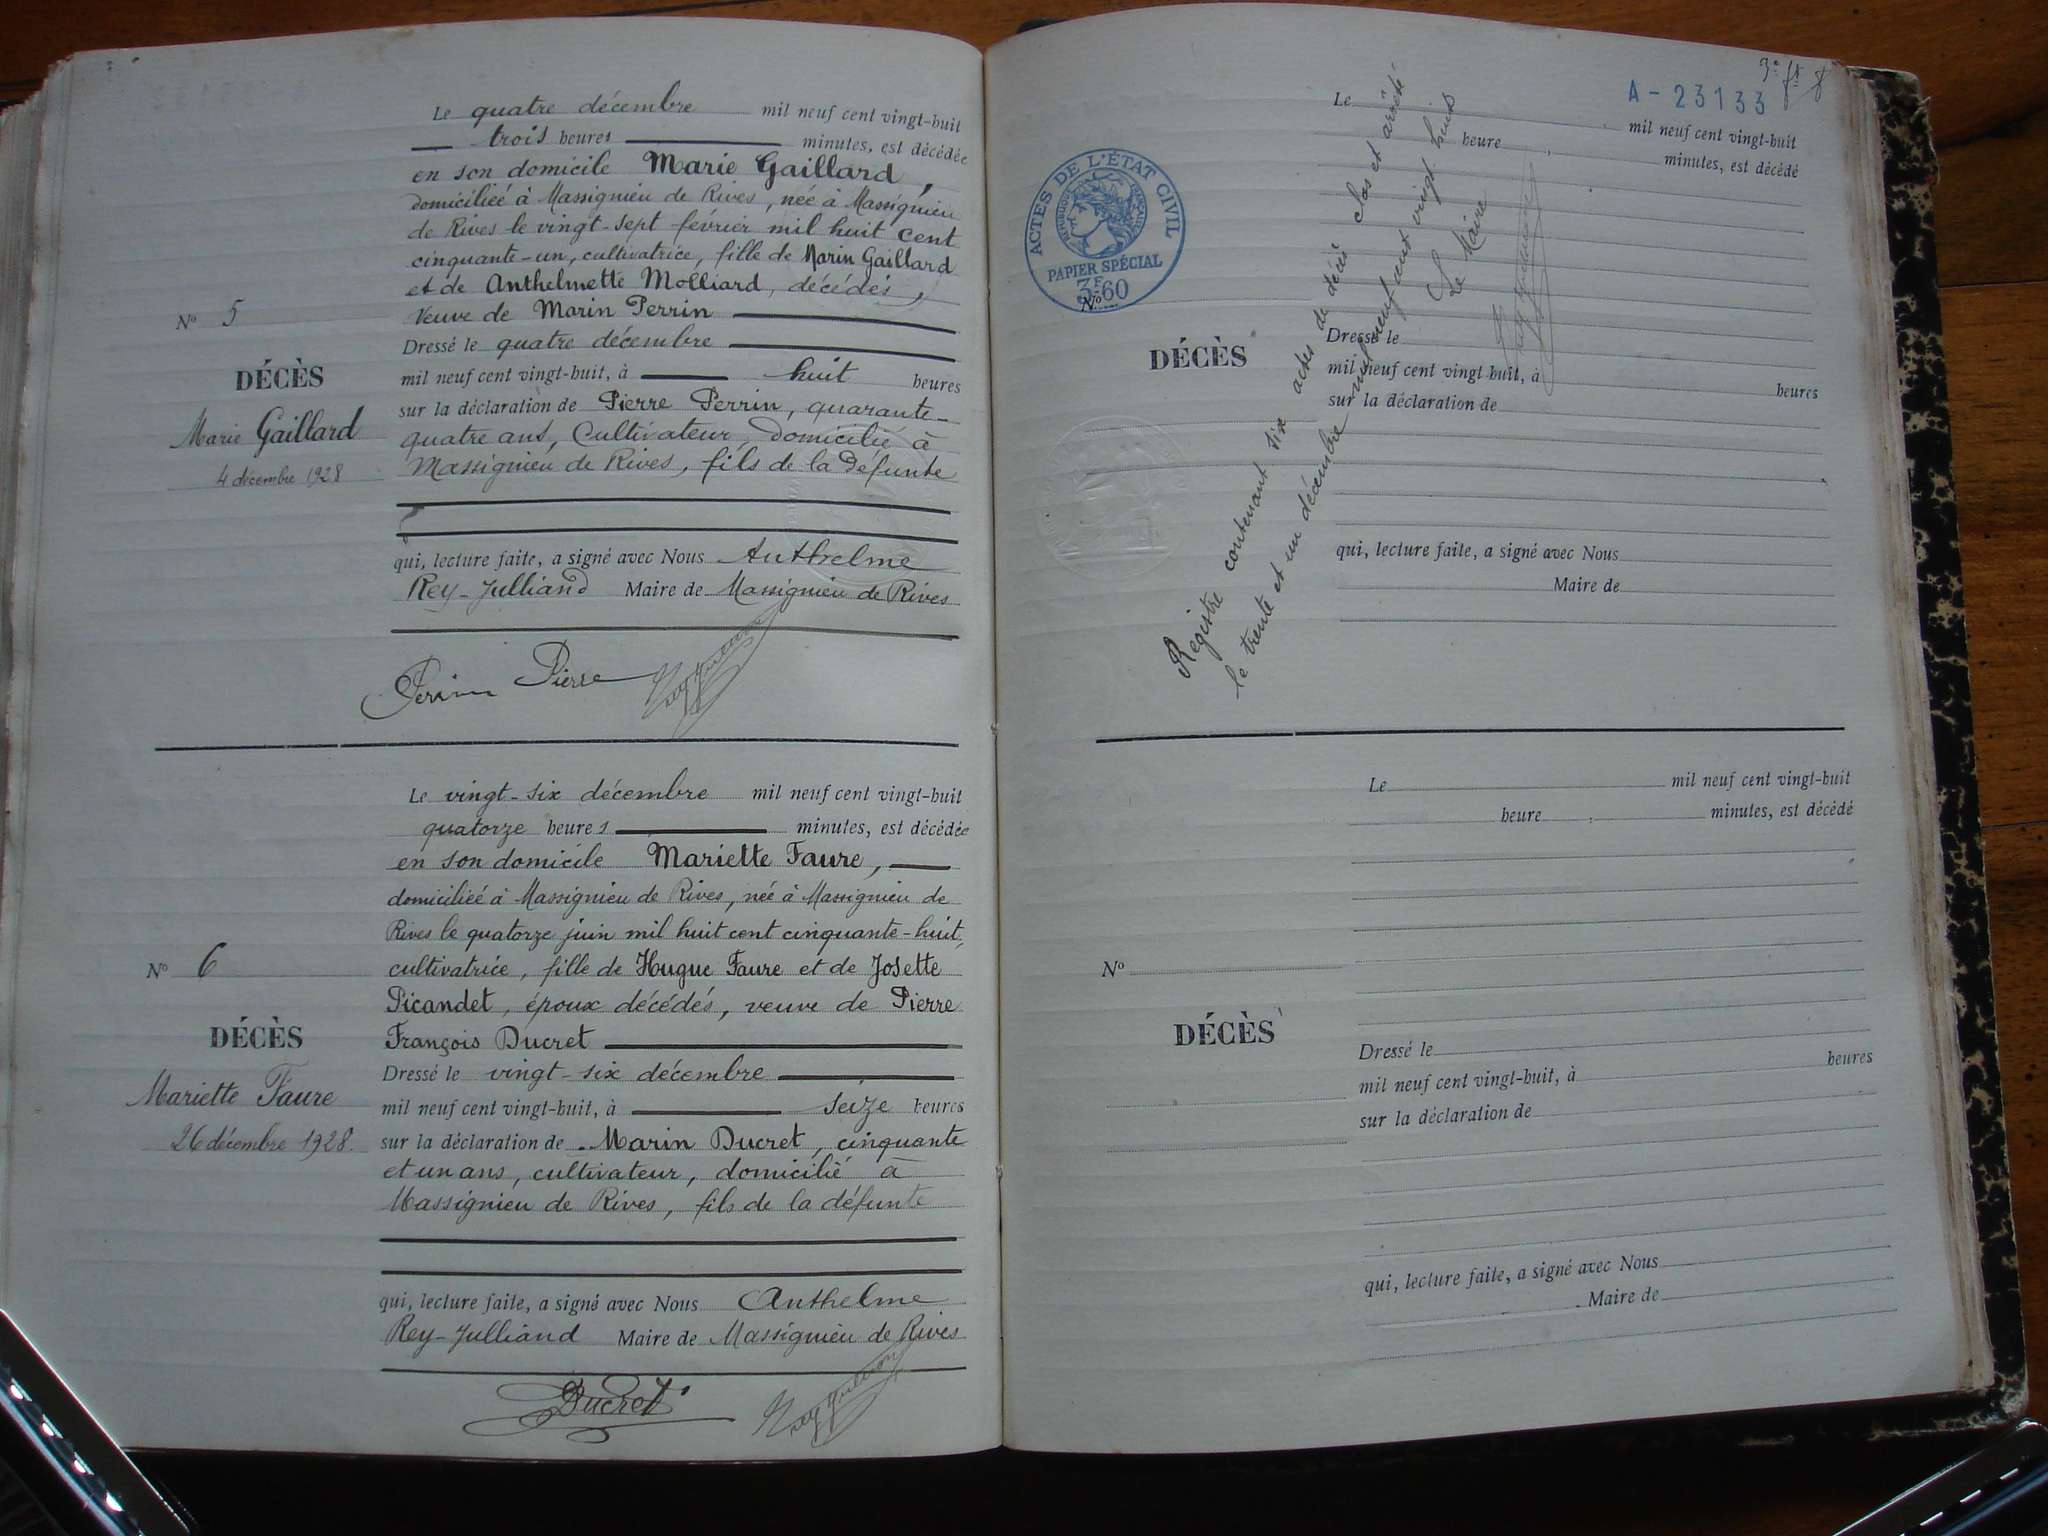 Le quatre décembre mil neuf cent vingt-huit
trois heures minutes, est décédée
en son domicile Marie Gaillard,
domiciliée à Massignieu de Rives, née à Massignieu
de Rives le vingt-sept février mil huit cent
cinquante-un, cultivatrice, fille de Marin Gaillard
et de Anthelmette Molliard, décédés,
Veuve de Marin Perrin
Dressé le quatre décembre
mil neuf cent vingt-huit, à huit heures
sur la déclaration de Pierre Perrin, quarante-
quatre ans, Cultivateur, Domicilié à
Massignieu de Rives, fils de la Défunte
qui, lecture faite, a signé avec Nous Anthelme
Rey-Julliand Maire de Massignieu de Rives
Nº 5
DÉCÈS
Marie Gaillard
4 décembre 1928
Perrin Pierre
Le vingt-six décembre mil neuf cent vingt-huit
quatorze heures minutes, est décédée
en son domicile Mariette Faure,
domiciliée à Massignieu de Rives, née à Massignieu de
Rives le quatorze juin mil huit cent cinquante-huit,
cultivatrice, fille de Hugue Faure et de Josette
Picandet, époux décédés, veuve de Pierre
François Ducret
Dressé le vingt-six décembre
mil neuf cent vingt-huit, à seize heures
sur la déclaration de Marin Ducret, cinquante
et un ans, cultivateur, domicilié à
Massignieu de Rives, fils de la défunte
qui, lecture faite, a signé avec Nous Anthelme
Rey-Julliand Maire de Massignieu de Rives
Nº 6
DÉCÈS
Mariette Faure
26 décembre 1928.
Ducret
A-23133
ACTES DE L'ÉTAT CIVIL
RÉPUBLIQUE FRANÇAISE
PAPIER SPÉCIAL
3F60
Nº
DÉCÈS
Le
mil neuf cent vingt-huit
heure minutes, est décédé
Dressé le
mil neuf cent vingt huit, à heures
sur la déclaration de
qui, lecture faite, a signé avec Nous
Maire de
Registre contenant six actes de décès clos et arrêté
le trente et un décembre mil neuf cent vingt huit
Le Maire
Le mil neuf cent vingt-huit
heure minutes, est décédé
Nº
DÉCÈS
Dressé le
mil neuf cent vingt-huit, à heures
sur la déclaration de
qui, lecture faite, a signé avec Nous
Maire de